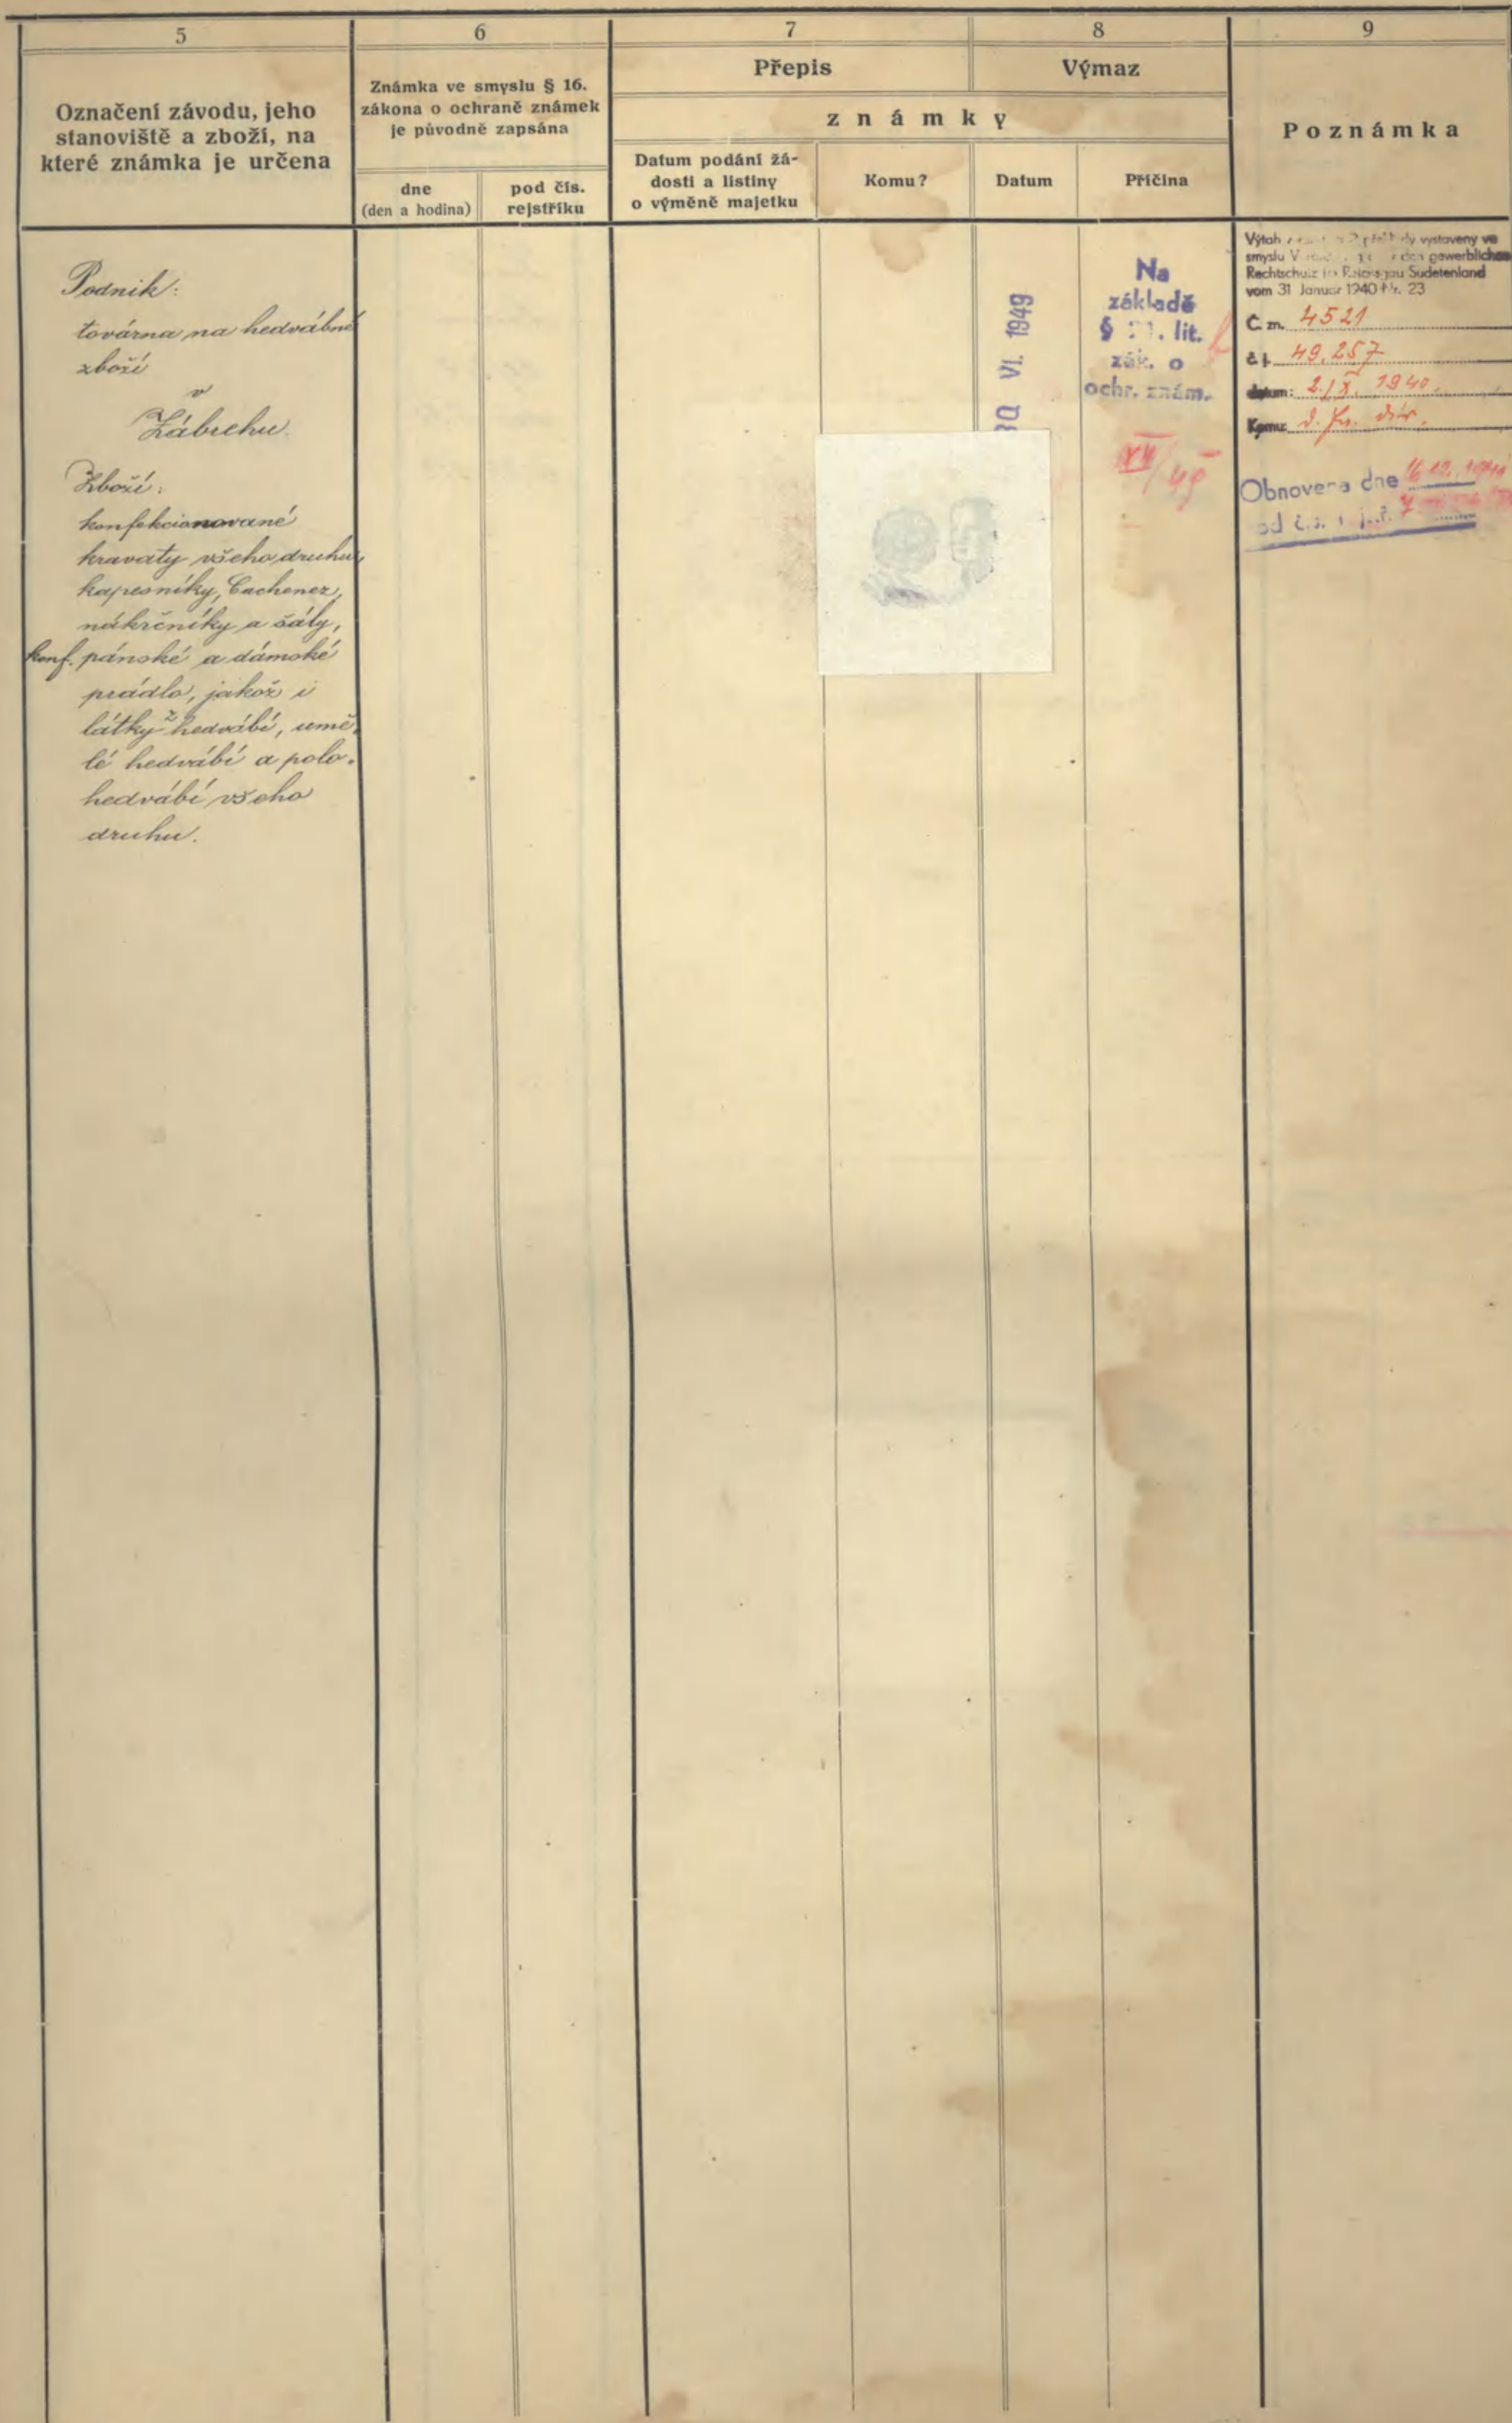 5
6
7
8
9
Označení závodu, jeho
stanoviště a zboží, na
které známka je určena
Známka ve smyslu § 16.
zákona o ochraně známek
je původně zapsána
dne
(den a hodina)
pod čís.
rejstříku
Přepis
Výmaz
známky
Datum podání žá-
dosti a listiny
o výměně majetku
Komu?
Datum
Příčina
Poznámka
Podnik:
továrna na hedvábné
zboží
v
Zábřehu.
Zboží:
konfekcionované
kravaty všeho druhu,
kapesníky, Cachenez,
nákrčníky a šály,
konf. pánské a dámské
prádlo, jakož i
látky z hedvábí, umě-
lé hedvábí a polo-
hedvábí všeho
druhu.
VI. 1949
Na
základě
§ lit.
zák. o
ochr. znám.
XII/49
Výtah vystaveny ve
smyslu gewerblichen
Rechtschutz im Reichsgau Sudetenland
vom 31 Januar 1940 Nr. 23
Č. zn. 4521
č. j. 49.257
datum: 2./X. 1940.
Komu:
Obnovena dne 16.12.